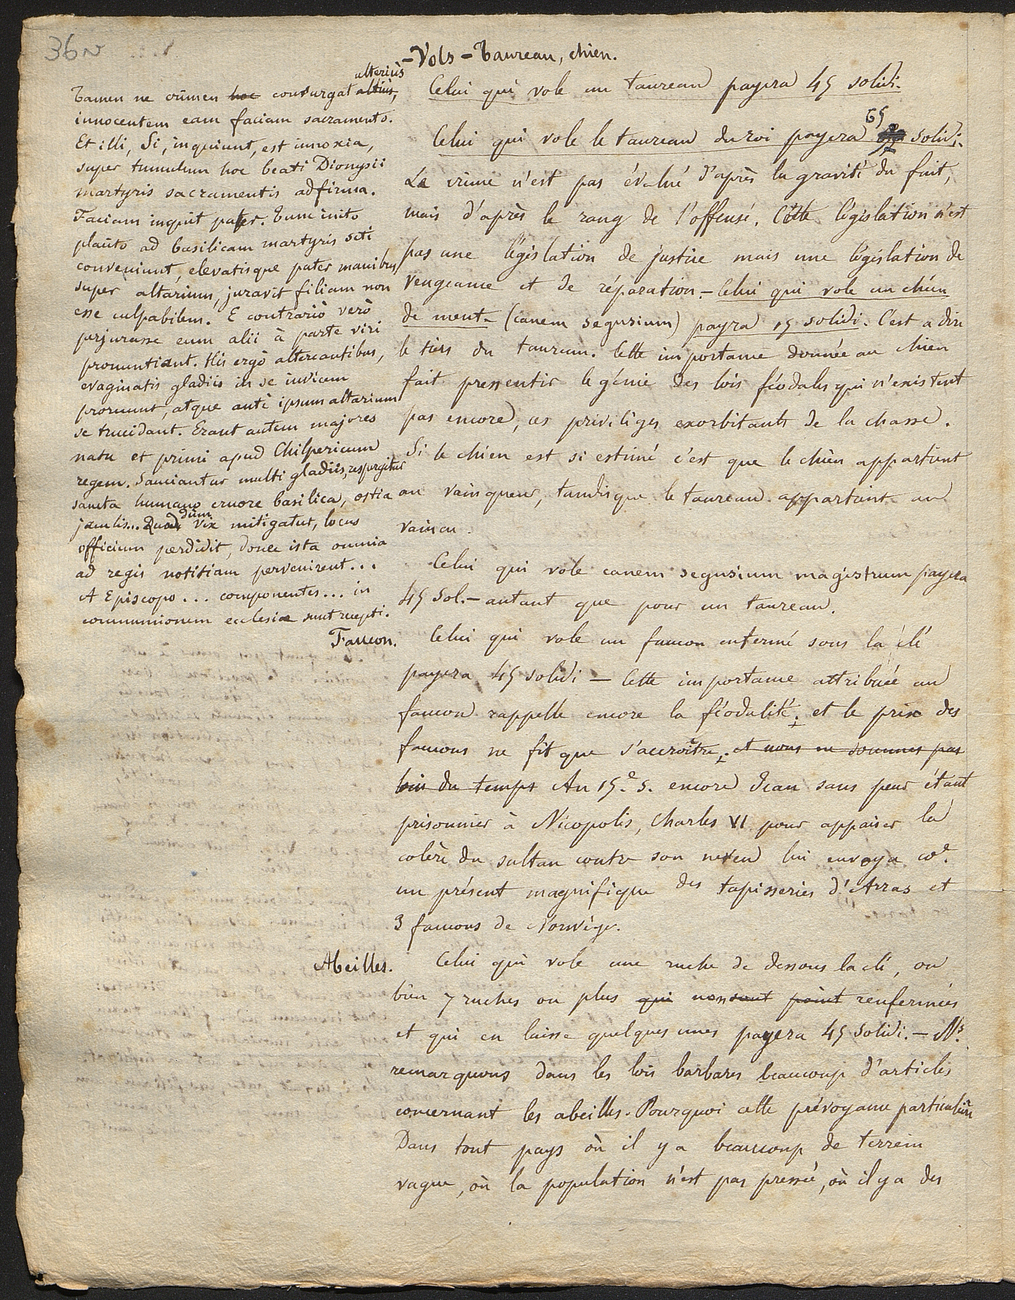 36v
-Vols - Taureau, chien.
alteriùs
Tamen ne crimen hoc consurgat altiùs,
innocentem eam faciam sacramento.
Et illi, Si, inquiunt, est innoxia,
super tumulum hoc beati Dionysii
martyris sacramentis adfirma.
Faciam inquit pater. Tum inito
placito ad basilicam martyris scti
conveniunt, elevatisque pater manibus
super altarium, juravit filiam non
esse culpabilem. E contrariò verò
perjurasse eum alii à parte viri
pronuntiant. His ergò altercantibus,
evaginatis gladiis in se invicem
proruunt, atque antè ipsum altarium
se trucidant. Erant autem majores
natu et primi apud Chilpericum
regem. Sauciantur multi gladiis, respergitur
sancta humano cruore basilica, ostia
jaculis... Quod dùm vix mitigatur, locus
officium perdidit, donec ista omnia
ad regis notitiam pervenirent...
A Episcopo... componentes... in
communionem ecclesiæ sunt recepti.
Celui qui vole un taureau payera 45 solidi.
65
Celui qui vole le taureau du roi payera solidi.
Le crime n'est pas évalué d'après la gravité du fait,
mais d'après le rang de l'offensé. Cette législation n'est
pas une législation de justice mais une législation de
vengeance et de réparation. - Celui qui vole un chien
de meut. (canem segusium) payra 15 solidi. C'est a dire
le tiers du taureau. Cette importance donnée au chien
fait pressentir le génie des lois féodales qui n'existent
pas encore, ces priviliges exorbitants de la chasse.
Si le chien est si estimé c'est que le chien appartient
au vainqueur, tandis que le taureau appartient au
vaincu.
Celui qui vole canem segusium magistrum payera
45 sol. - autant que pour un taureau.
Faucon.
Celui qui vole un faucon enfermé sous la clé
payera 45 solidi - Cette importance attribuée au
faucon rappelle encore la féodalité; et le prix des
faucons ne fit que s'accroître; et nous ne sommes pas
loin du temps Au 15e s. encore Jean sans peur étant
prisonnier à Nicopolis, Charles VI pour appaiser la
colère du sultan contre son neveu lui envoya coe
un présent magnifique des tapisseries d'Arras et
3 faucons de Norwège.
Abeilles.
Celui qui vole une ruche de dessous la clé, ou
bien 7 ruches ou plus qui non sont point renfermées
et qui en laisse quelques unes payera 45 solidi. - Ns
remarquons dans les lois barbares beaucoup d'articles
concernant les abeilles. Pourquoi cette prévoyance particulière
Dans tout pays où il y a beaucoup de terrein
vague, où la population n'est pas pressée, où il y a des